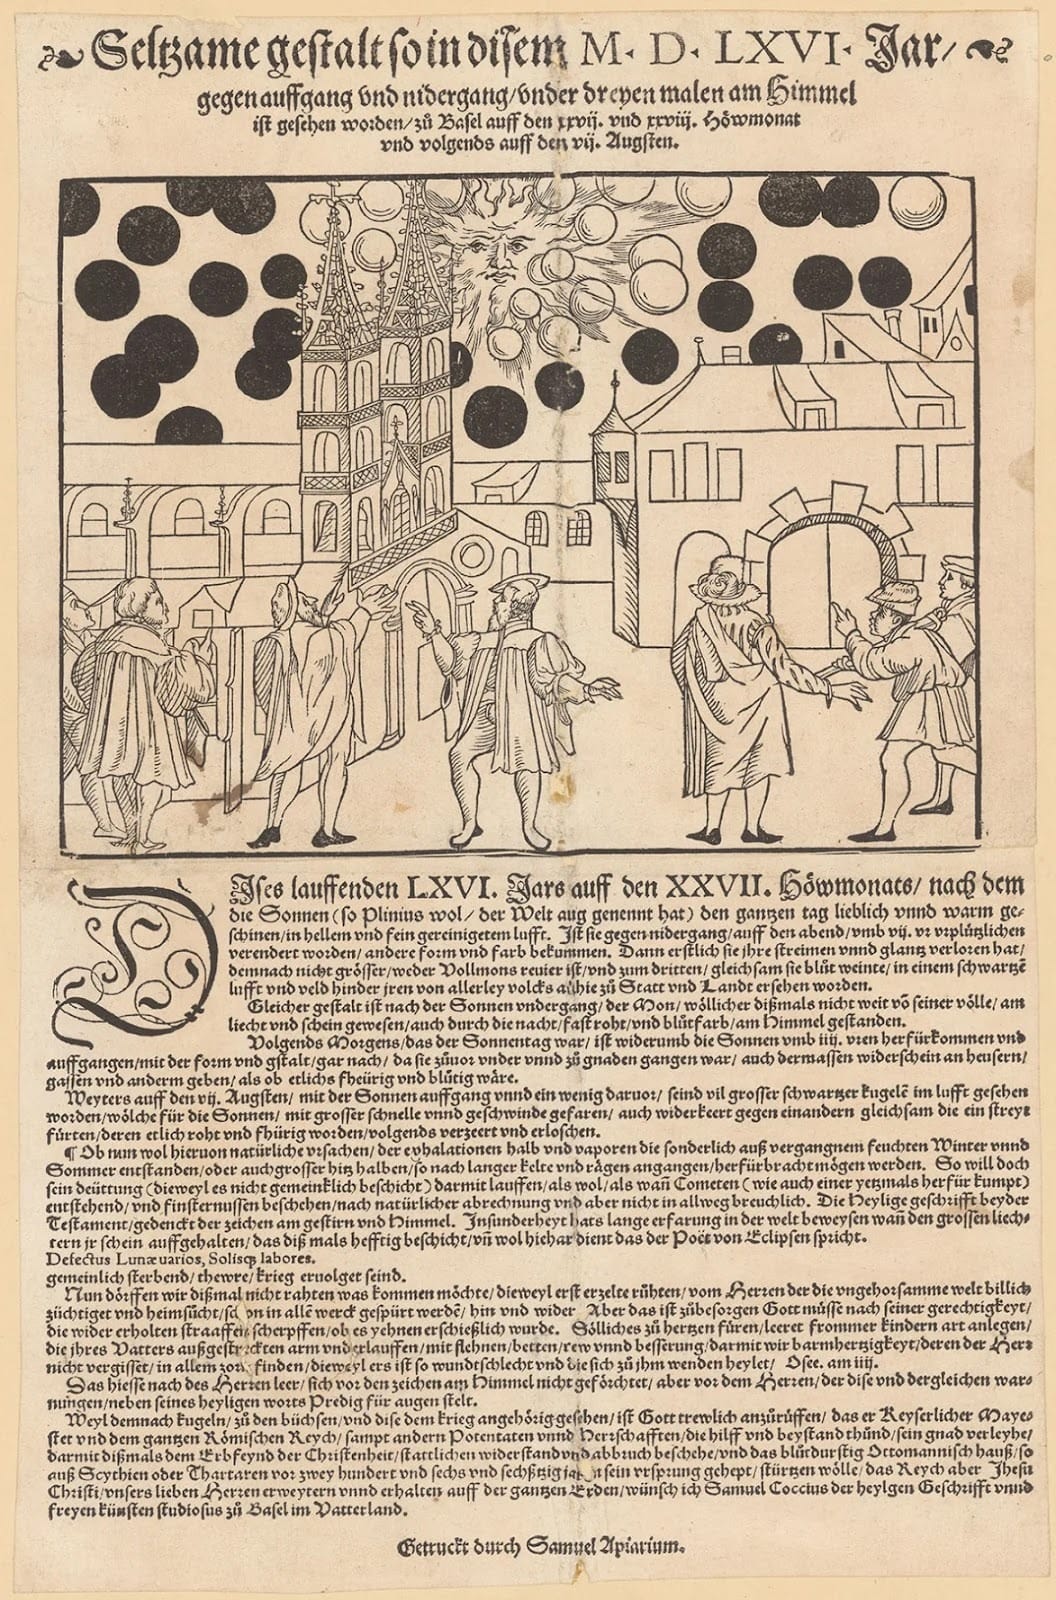 Seltzame gestalt so in disem M. D. LXVI. Jar/
gegen auffgang vnd nidergang/vnder dreyen malen am Himmel
ist gesehen worden/zů Basel auff den xxvij. vnd xxviij. Höwmonat
vnd volgends auff den vij. Augsten.
DIses lauffenden LXVI. Jars auff den XXVII. Höwmonats/ nach dem
die Sonnen (so Plinius wol/ der Welt aug genennt hat) den gantzen tag lieblich vnnd warm ge-
schinen/in hellem vnd fein gereinigetem lufft. Ist sie gegen nidergang/auff den abend/vmb vij. vr vrplützlichen
verendert worden/ andere form vnd farb bekummen. Dann erstlich sie jhre streimen vnnd glantz verloren hat/
demnach nicht grösser/weder Vollmons reuier ist/vnd zum dritten/ gleichsam sie blůt weinte/ in einem schwartzē
lufft vnd veld hinder jren von allerley volcks alhie zů Statt vnd Landt ersehen worden.
Gleicher gestalt ist nach der Sonnen vndergang/ der Mon/ wöllicher dißmals nicht weit vō seiner völle/ am
liecht vnd schein gewesen/auch durch die nacht/fast roht/vnd blůtfarb/am Himmel gestanden.
Volgends Morgens/das der Sonnentag war/ ist widerumb die Sonnen vmb iiij. vren herfürkommen vnd
auffgangen/mit der form vnd gstalt/gar nach/ da sie zůuor vnder vnnd zů gnaden gangen war/ auch dermassen widerschein an heusern/
gassen vnd anderm geben/als ob etlichs fheürig vnd blůtig wäre.
Weyters auff den vij. Augsten/ mit der Sonnen auffgang vnnd ein wenig daruor/ seind vil grosser schwartzer kugelē im lufft gesehen
worden/wölche für die Sonnen/ mit grosser schnelle vnnd geschwinde gefaren/ auch widerkeert gegen einandern gleichsam die ein streyt
fůrten/deren etlich roht vnd fhürig worden/volgends verzeert vnd erloschen.
¶ Ob nun wol hieruon natürliche vrsachen/ der exhalationen halb vnd vaporen die sonderlich auß vergangnem feuchten Winter vnnd
Sommer entstanden/oder auch grosser hitz halben/so nach langer kelte vnd rägen angangen/herfürbracht mögen werden. So will doch
sein deüttung (dieweyl es nicht gemeinklich beschicht) darmit lauffen/als wol/als wañ Cometen (wie auch einer yetzmals herfür kumpt)
entstehend/vnd finsternussen beschehen/nach natürlicher abrechnung vnd aber nicht in allweg breuchlich. Die Heylige geschrifft beyder
Testament/gedenckt der zeichen am gestirn vnd Himmel. Insunderheyt hats lange erfarung in der welt beweysen wañ den grossen liech-
tern jr schein auffgehalten/das diß mals hefftig beschicht/vñ wol hiehar dient das der Poët von Eclipsen spricht.
Defectus Lunæ uarios, Solisq; labores.
gemeinlich sterbend/thewre/krieg eruolget seind.
Nun dörffen wir dißmal nicht rahten was kommen möchte/dieweyl erst erzelte růhten/vom Herren der die vngehorsamme welt billich
züchtiget vnd heimsůcht/schon in allē werck gespürt werdē/ hin vnd wider. Aber das ist zůbesorgen Gott müsse nach seiner gerechtigkeyt/
die wider erholten straaffen scherpffen/ob es yehnen erschießlich wurde. Sölliches zů hertzen fůren/leeret frommer kindern art anlegen/
die jhres Vatters außgestreckten arm vnd erlauffen/mit flehnen/betten/rew vnnd besserung/darmit wir barmhertzigkeyt/deren der Herr
nicht vergisset/in allem zorn finden/dieweyl er ist so wundtschlecht vnd die sich zů jhm wenden heylet/ Osee. am iiij.
Das hiesse nach des Herren leer/ sich vor den zeichen am Himmel nicht geförchtet/ aber vor dem Herren/der dise vnd dergleichen war-
nungen/neben seines heyligen worts Predig für augen stelt.
Weyl demnach kugeln/zů den büchsen/vnd dise dem krieg angehörig gesehen/ist Gott trewlich anzůrůffen/das er Keyserlicher Mayes-
stet vnd dem gantzen Römischen Reych/sampt andern Potentaten vnnd Herrschafften/die hilff vnd beystand thůnd/sein gnad verleyhe/
darmit dißmals dem Erbfeynd der Christenheit/stattlichen widerstand vnd abbruch beschehe/vnd das blůtdurstig Ottomannisch hauß/so
auß Scythien oder Thartaren vor zwey hundert vnd sechs vnd sechßtzig jaren sein vrsprung gehept/stürtzen wölle/das Reych aber Jhesu
Christi/vnsers lieben Herren erweytern vnnd erhalten auff der gantzen Erden/wünsch ich Samuel Coccius der heylgen Geschrifft vnnd
freyen künsten studiosus zů Basel im Vatterland.
Getruckt durch Samuel Apiarium.